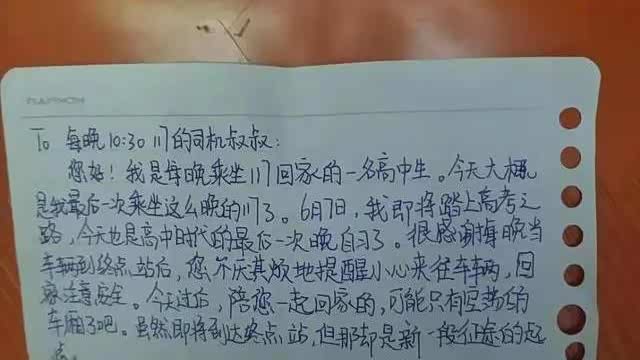 To 每晚10:30 117的司机叔叔:
您好!我是每晚乘坐117回家的一名高中生。今天大概
是我最后一次乘坐这么晚的117了。6月7日,我即将踏上高考之
路,今天也是高中时代的最后一次晚自习了。很感谢每晚当
车辆到终点站后,您不厌其烦地提醒小心来往车辆,回
家注意安全。今天过后,陪您一起回家的,可能只有空荡的
车厢了吧。虽然即将到达终点站,但那却是新一段征途的起